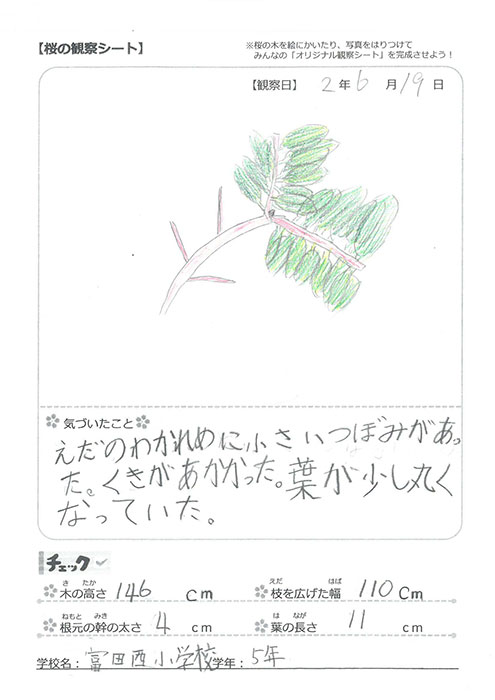 【桜の観察シート】
※桜の木を絵にかいたり、写真をはりつけて
みんなの「オリジナル観察シート」を完成させよう！
【観察日】 2年6月19日
気づいたこと
えだのわかれめに小さいつぼみがあっ
た。くきがあかかった。葉が少し丸く
なっていた。
チェック
き たか えだ ひろ はば
木の高さ 146 cm 枝を広げた幅 110 cm
ねもと みき は なが
根元の幹の太さ 4 cm 葉の長さ 11 cm
学校名：富田西小学校 学年：5年